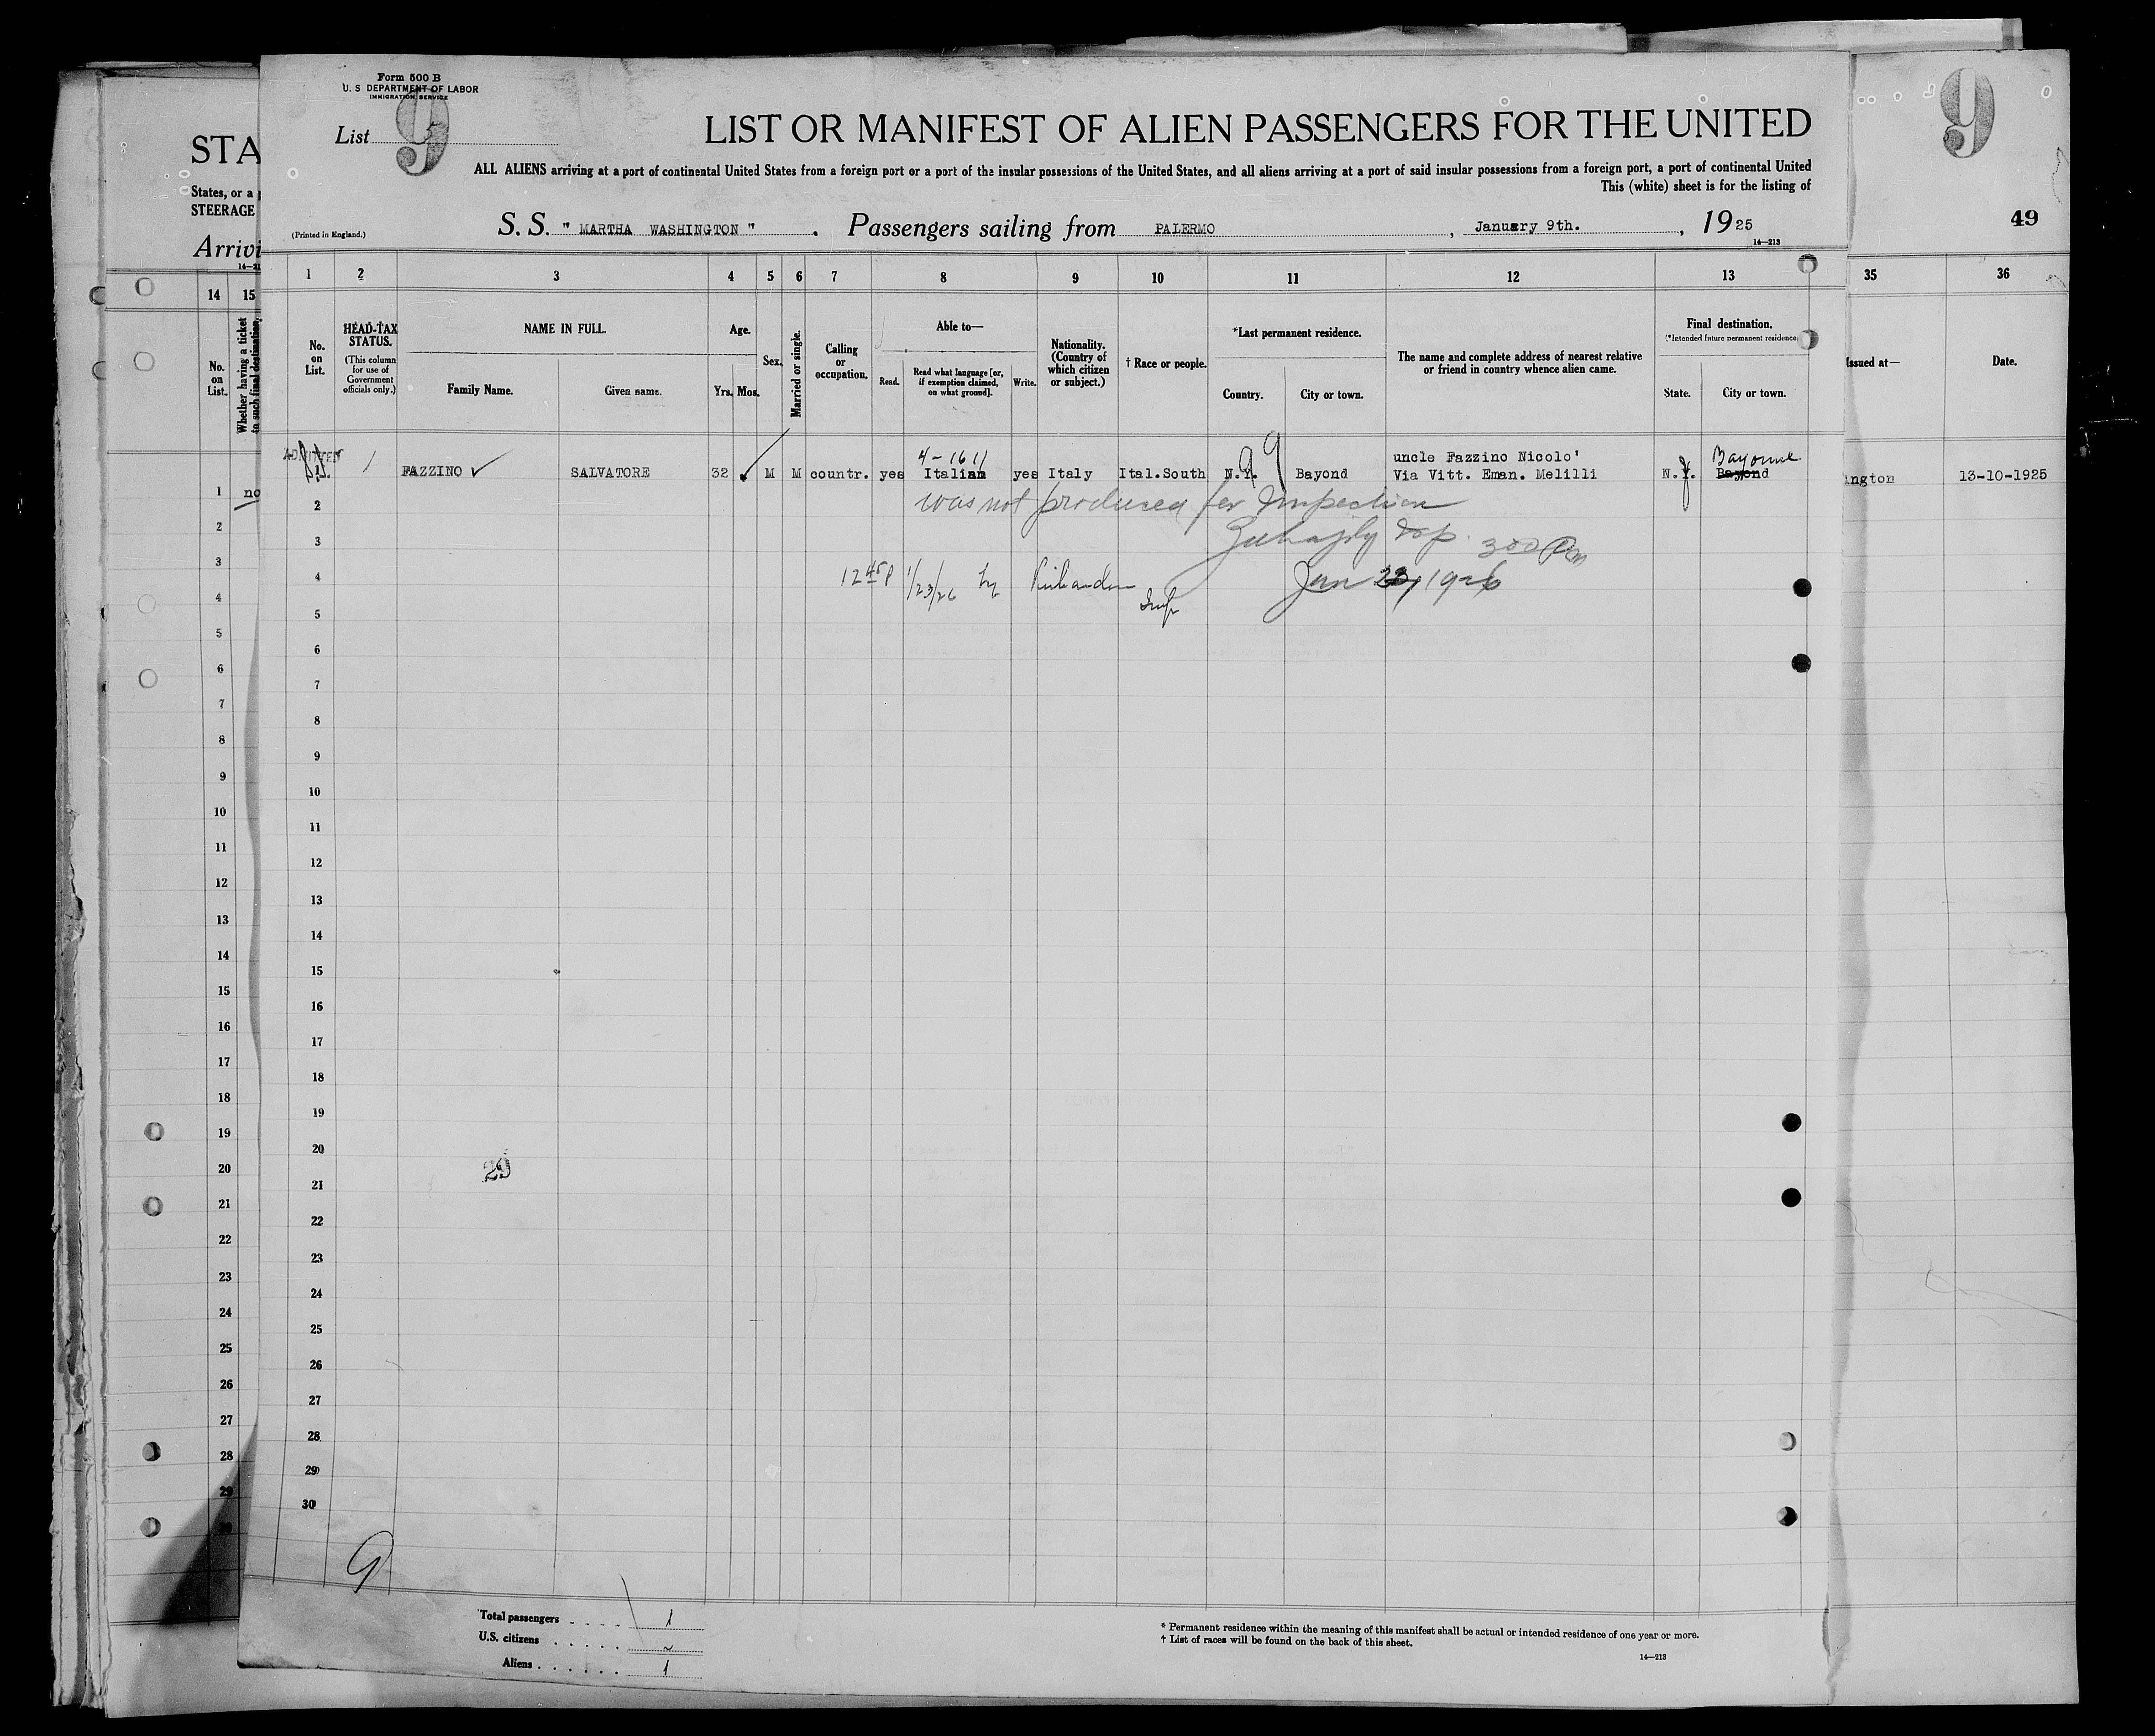 Form 500 B
U. S DEPARTMENT OF LABOR
IMMIGRATION SERVICE
List 5
9
LIST OR MANIFEST OF ALIEN PASSENGERS FOR THE UNITED
ALL ALIENS arriving at a port of continental United States from a foreign port or a port of the insular possessions of the United States, and all aliens arriving at a port of said insular possessions from a foreign port, a port of continental United
This (white) sheet is for the listing of
(Printed in England.)
S. S. " MARTHA WASHINGTON " . Passengers sailing from PALERMO , January 9th. , 1925
14—213
STA
States, or a
STEERAGE
Arrivi
9
49
1 2 3 4 5 6 7 8 9 10 11 12 13
14 15
35 36
No. on List.
HEAD-TAX STATUS.
(This column for use of Government officials only.)
NAME IN FULL.
Family Name.
Given name.
Age.
Yrs. Mos.
Sex.
Married or single.
Calling or occupation.
Able to—
Read.
Read what language [or, if exemption claimed, on what ground].
Write.
Nationality. (Country of which citizen or subject.)
† Race or people.
*Last permanent residence.
Country.
City or town.
The name and complete address of nearest relative or friend in country whence alien came.
Final destination.
(*Intended future permanent residence)
State.
City or town.
No. on List.
Whether having a ticket to such final destination.
Issued at—
Date.
ADMITTED
4-1611
Bayonne
uncle Fazzino Nicolo'
1 FAZZINO ✓ SALVATORE 32 M M countr. yes Italian yes Italy Ital.South N.Y. 9 Bayond Via Vitt. Eman. Melilli N.J. Bayond
1 no
ington 13-10-1925
was not produced for Inspection
300 Pm
12 45 P 1/23/26 by Richardson Insp
Jan 23, 1926
2
3
4
5
6
7
8
9
10
11
12
13
14
15
16
17
18
19
20
21
22
23
24
25
26
27
28
29
30
2
3
4
5
6
7
8
9
10
11
12
13
14
15
16
17
18
19
20
21
22
23
24
25
26
27
28
29
30
29
9
Total passengers . . . . 1
U.S. citizens . . . . .
Aliens . . . . . . 1
* Permanent residence within the meaning of this manifest shall be actual or intended residence of one year or more.
† List of races will be found on the back of this sheet.
14—213